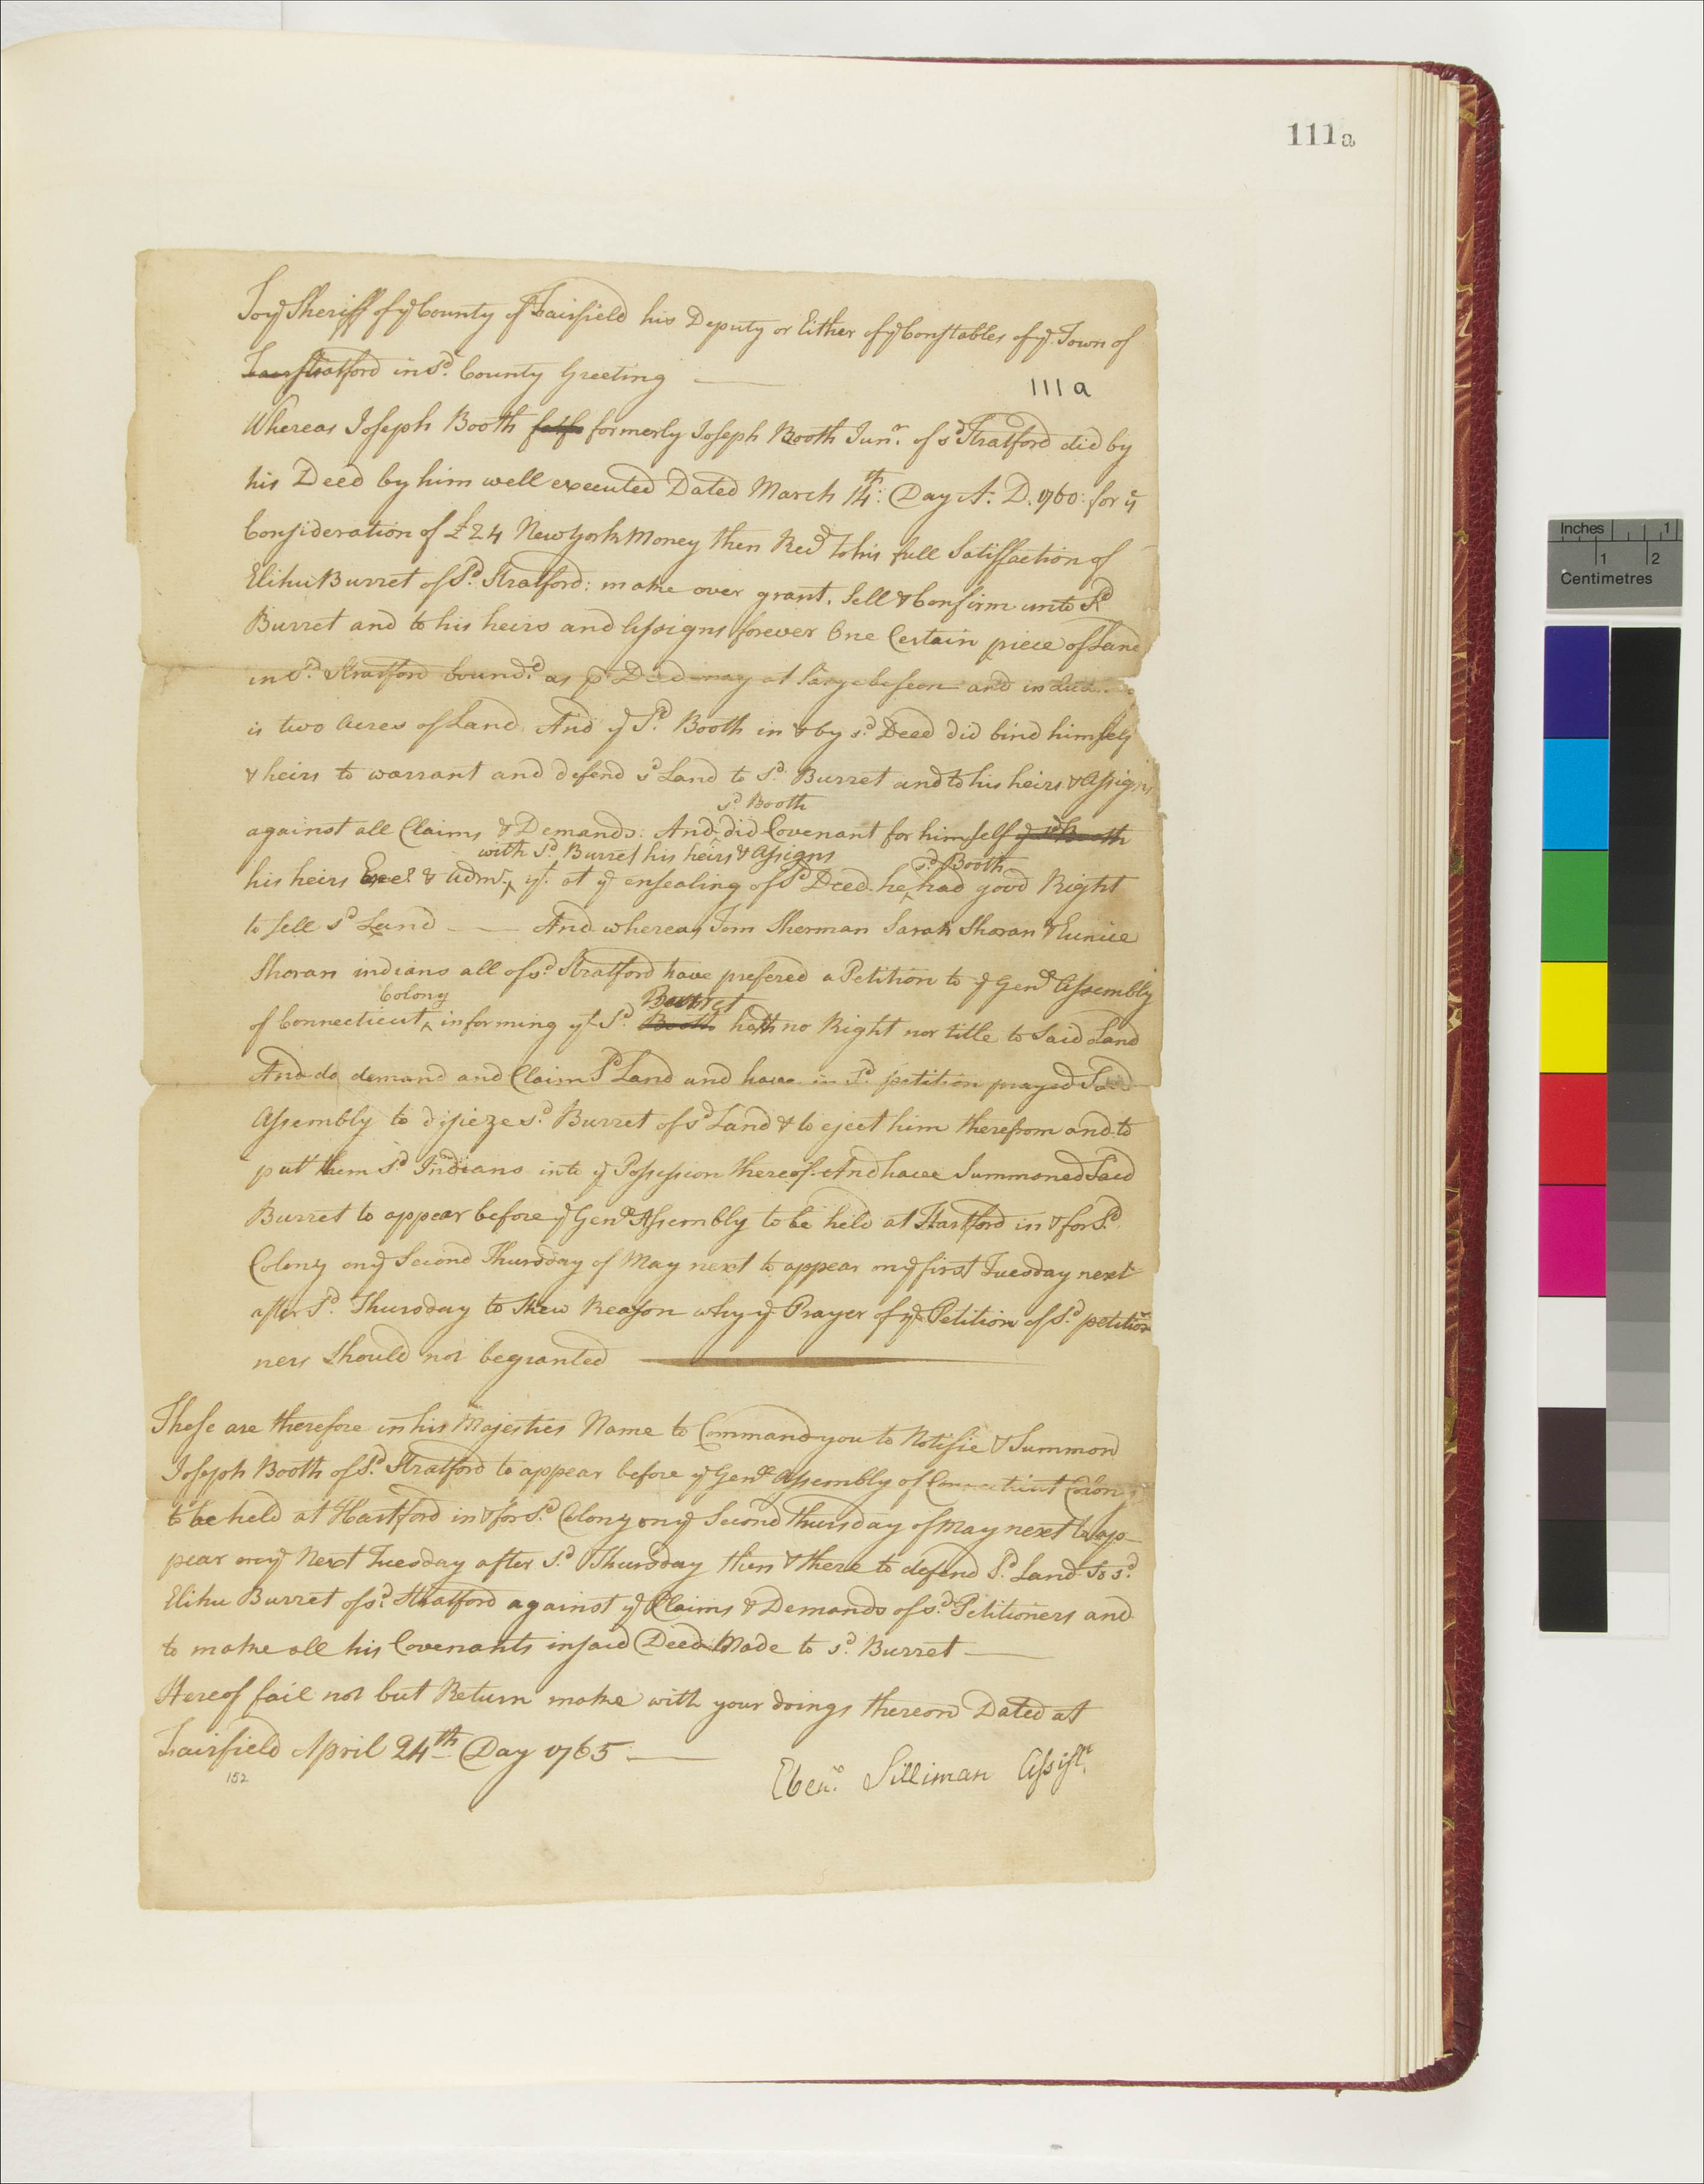 111a
To yͤ Sheriff of yͤ County of Fairfield his Deputy or Either of yͤ Constables of yͤ Town of
Stratford in Sᵈ. County Greeting
111a
Whereas Joseph Booth formerly Joseph Booth Junʳ. of sᵈ Stratford did by
his Deed by him well executed Dated March 14ᵗʰ: Day A: D. 1760: for yͤ
Consideration of £24 New York Money then Recᵈ to his full Satisfaction of
Elihu Burret of Sᵈ. Stratford: make over grant, Sell & Confirm unto Sᵈ
Burret and to his heirs and assigns forever One Certain piece of Land
in Sᵈ. Stratford boundᵈ. as Deed may at large be seen and in
is two acres of Land. And yͤ Sᵈ. Booth in & by sᵈ. Deed did bind himself
& heirs to warrant and defend sᵈ Land to Sᵈ. Burret and to his heirs & Assigns
sᵈ Booth
against all Claims & Demands: And ‸ did Covenant for himself yͤ sᵈ Booth
with Sᵈ Burret his heirs & Assigns sᵈ Booth
his heirs Execʳˢ & Admʳˢ ‸ yᵗ. at yͤ ensealing of Sᵈ Deed. he ‸ had good Right
to sell sᵈ Land —— And whereas Tom Sherman Sarah Shoran & Eunice
Shoran indians all of sᵈ. Stratford have prefered a Petition to yͤ Genˡˡ Assembly
Colony Burret
of Connecticut ‸ informing yᵗ Sᵈ. Booth hath no Right nor title to Said Land
And do demand and Claim Sᵈ Land and have in Sᵈ. petition prayed Said
Assembly to disieze sᵈ. Burret of sᵈ Land & to eject him therefrom and to
put them Sᵈ Indians into yͤ Possession thereof. And have Summoned Said
Burret to appear before yͤ Genˡˡ Assembly to be held at Hartford in & for Sᵈ.
Colony on yͤ Second Thursday of May next to appear on yͤ first Tuesday next
after Sᵈ. Thursday to Shew Reason why yͤ Prayer of yͤ Petition of Sᵈ. petitio
ners should not be granted
These are therefore in his Majesties Name to Command you to Notifie & Summon
Joseph Booth of Sᵈ. Stratford to appear before yͤ Genˡˡ Assembly of Connecticut Colony
to be held at Hartford in & for Sᵈ. Colony on yͤ Second Thursday of May next to ap-
pear on yͤ Next Tuesday after Sᵈ. Thursday then & there to defend Sᵈ. Land to sᵈ.
Elihu Burret of sᵈ. Stratford against yͤ Claims & Demands of sᵈ. Petitioners and
to make all his Covenants in said Deed Made to sᵈ. Burret ——
Hereof fail not but Return make with your doings thereon Dated at
Fairfield April 24ᵗʰ Day 1765 ——
152
Ebenʳ. Silliman Assisᵗ.
Inches 1
1 2
Centimetres